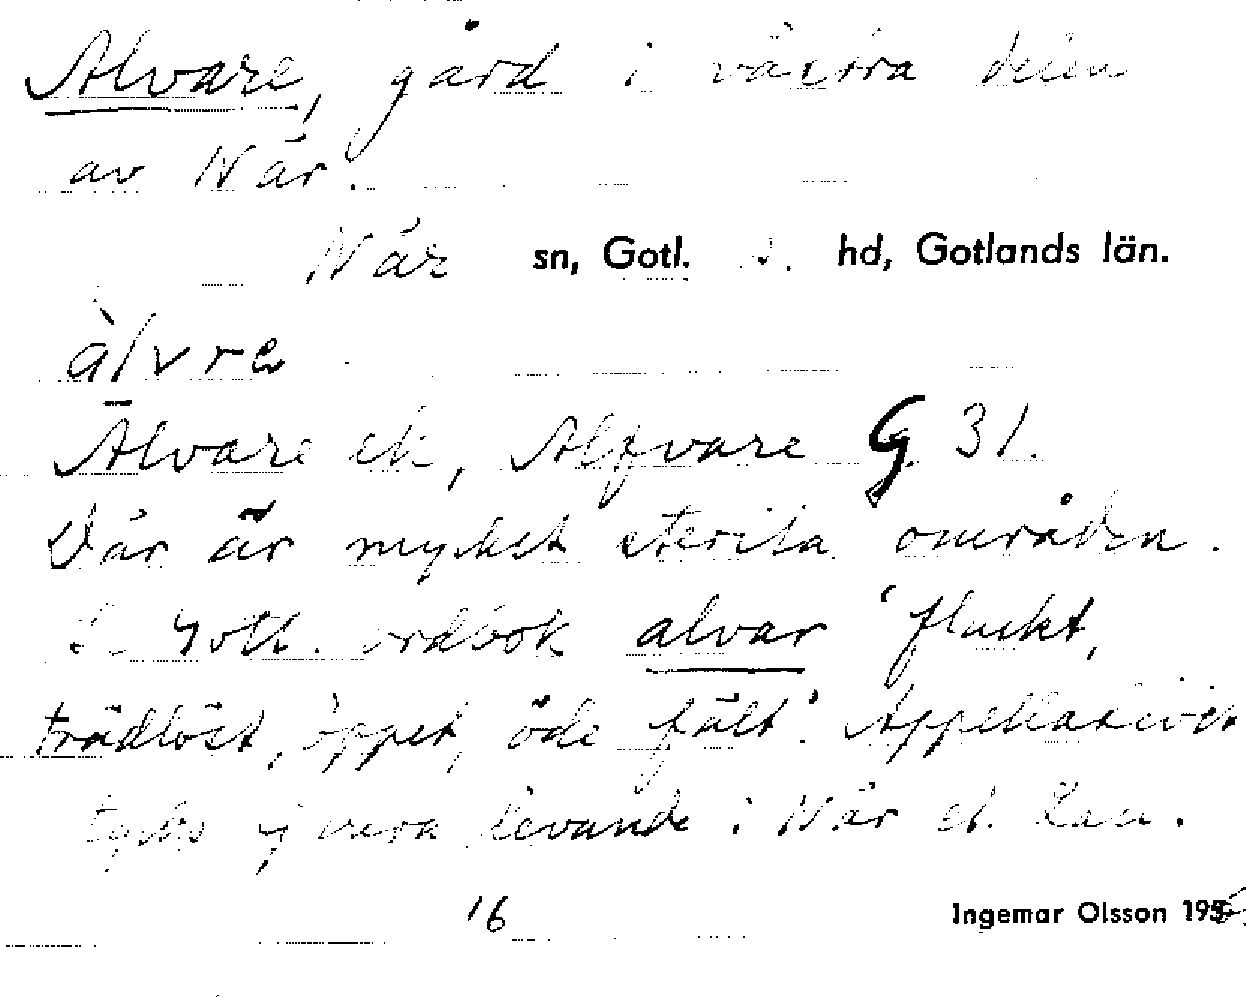 Alvare, gård i västra delen
av När.
När sn, Gotl. s. hd, Gotlands län.
àlvre
Alvare ek, Alfvare G 31.
Där är mycket sterila områden.
I Gotl. ordbok alvar 'flackt,
trädlöst, öppet, öde fält'. Appellativet
tycks ej vara levande i När el. Lau.
16
Ingemar Olsson 195